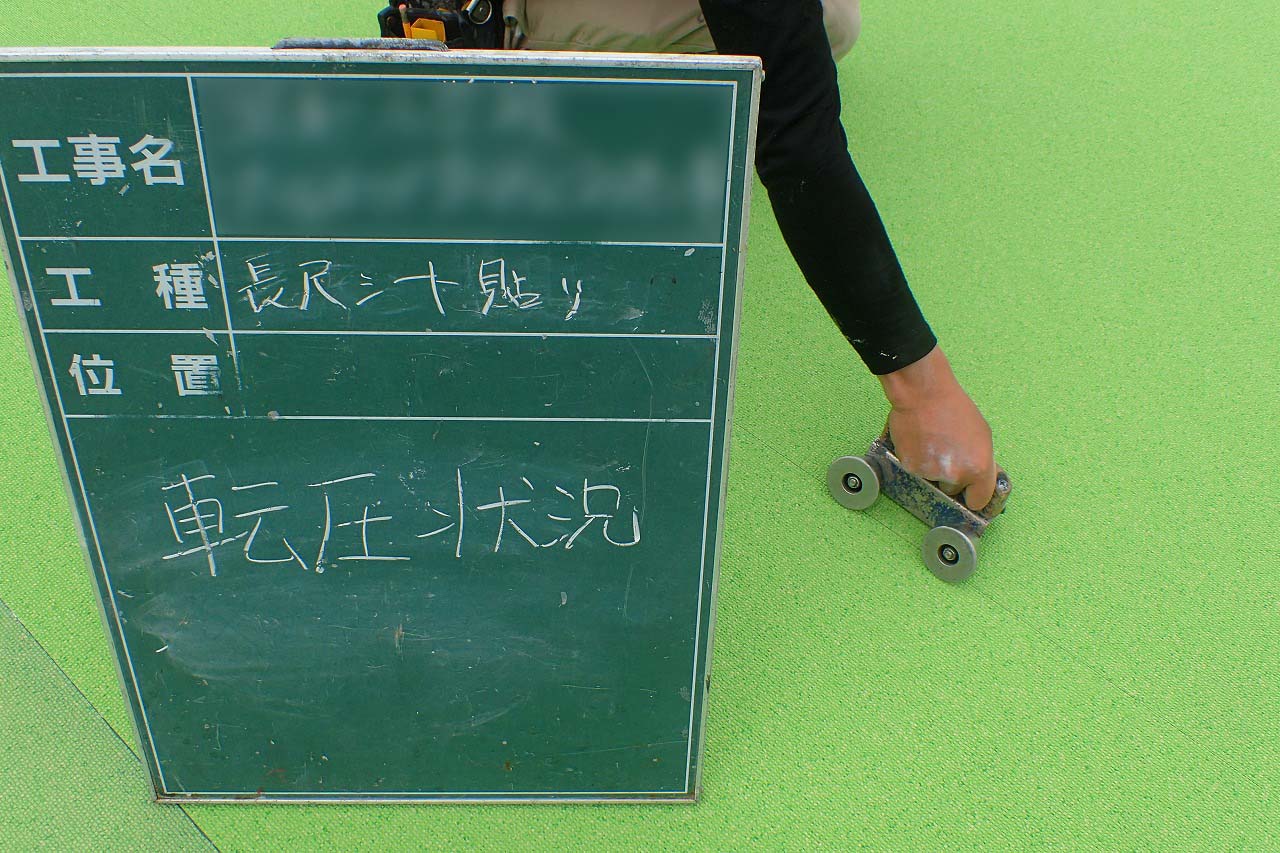 工事名
工種 長尺シート貼り
位置
転圧状況